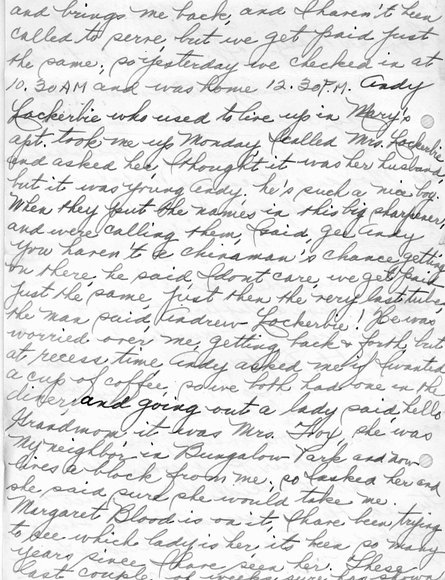 and brings me back, and I haven't been
called to serve, but we get paid just
the same, so yesterday we checked in at
10.30 AM and was home 12.30 P.M. Andy
Lockerbie who used to live up in Mary's
apt. took me up Monday, I called Mrs. Lockerbie
and asked her, I thought it was her husband,
but it was young Andy, he's such a nice boy.
When they put the names in this big sharpener,
and were calling them, I said, gee Andy
you haven't a chinaman's chance getting
on there, he said, I don't care, we get paid
just the same, just then the very last tube,
the man said, Andrew Lockerbie! He was
worried over me, getting back & forth, but
at recess time, Andy asked me if I wanted
a cup of coffee, so we both had one in the
diner, and going out a lady said, hello
Grandmom, it was Mrs. Fox, she was
my neighbor in Bungalow Park and now
lives a block from me, so I asked her and
she said sure she would take me.
Margaret Blood is on it, I have been trying
to see which lady is her, its been so many
years since I have seen her. These
last couple of weeks